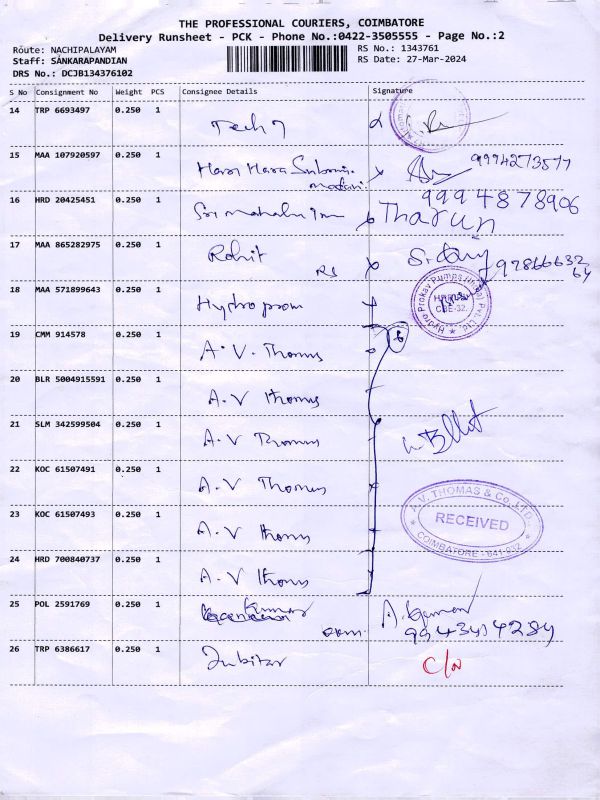 THE PROFESSIONAL COURIERS, COIMBATORE
Delivery Runsheet - PCK - Phone No.:0422-3505555 - Page No.:2
Route: NACHIPALAYAM
RS No.: 1343761
Staff: SANKARAPANDIAN
RS Date: 27-Mar-2024
DRS No.: DCJB134376102
S No Consignment No Weight PCS Consignee Details Signature
14 TRP 6693497 0.250 1
Tech 7
15 MAA 107920597 0.250 1
Hara Hara 9994273577
16 HRD 20425451 0.250 1
9994878906
Sri Tharun
17 MAA 865282975 0.250 1
Rohit
RS
18 MAA 571899643 0.250 1
Hydro prom
Hydro Prokav Pumps (India) Pvt. Ltd.
CBE-32.
19 CMM 914578 0.250 1
A.V. Thomas
6
20 BLR 5004915591 0.250 1
A.V Thomas
21 SLM 342599504 0.250 1
A.V Thomas
22 KOC 61507491 0.250 1
A.V Thomas
A.V. THOMAS & Co. LTD.
RECEIVED
COIMBATORE - 641 032
23 KOC 61507493 0.250 1
A.V Thomas
24 HRD 700840737 0.250 1
A.V Thomas
25 POL 2591769 0.250 1
Kumar
26 TRP 6386617 0.250 1
Jubitar